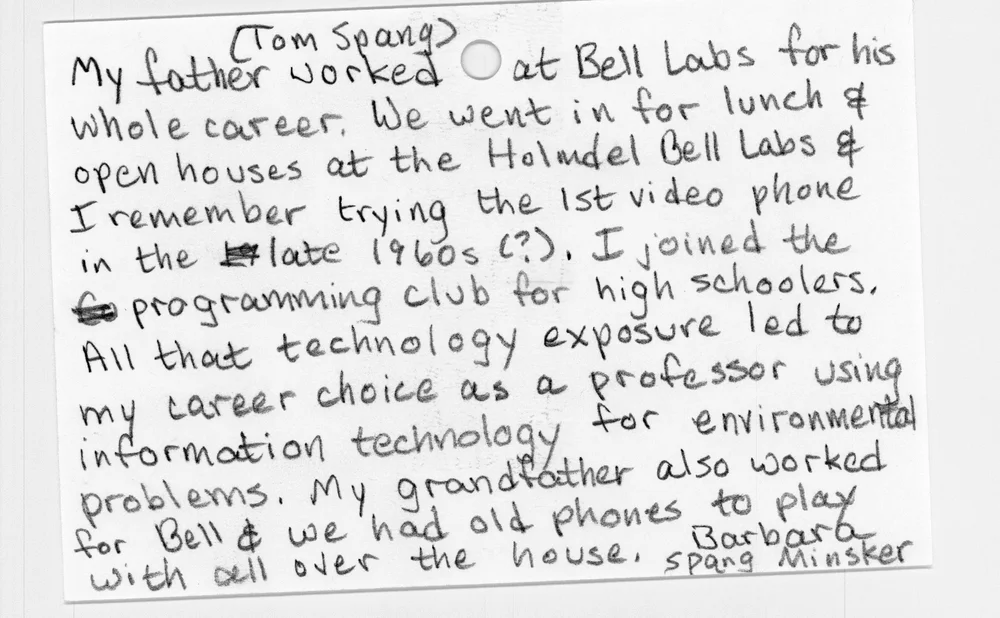 (Tom Spang)
My father worked at Bell Labs for his
whole career. We went in for lunch &
open houses at the Holmdel Bell Labs &
I remember trying the 1st video phone
in the late 1960s (?). I joined the
programming club for high schoolers.
All that technology exposure led to
my career choice as a professor using
information technology for environmental
problems. My grandfather also worked
for Bell & we had old phones to play
with all over the house. Barbara
Spang Minsker